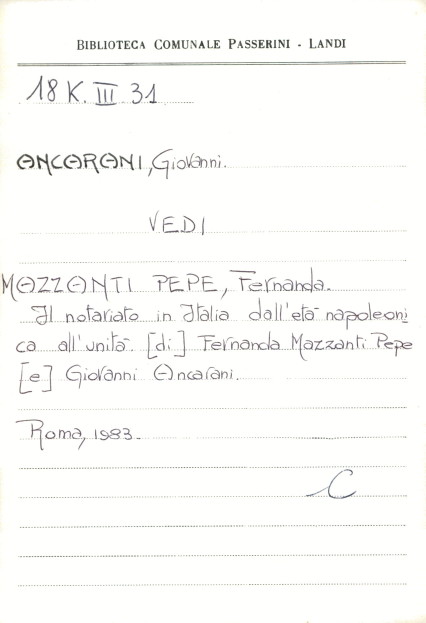 BIBLIOTECA COMUNALE PASSERINI - LANDI
18 K. III 31
ANCARANI, Giovanni.
VEDI
MAZZANTI PEPE, Fernanda.
Il notariato in Italia dall'età napoleoni
ca all'unità. [di] Fernanda Mazzanti Pepe
[e] Giovanni Ancarani.
Roma, 1983.
C